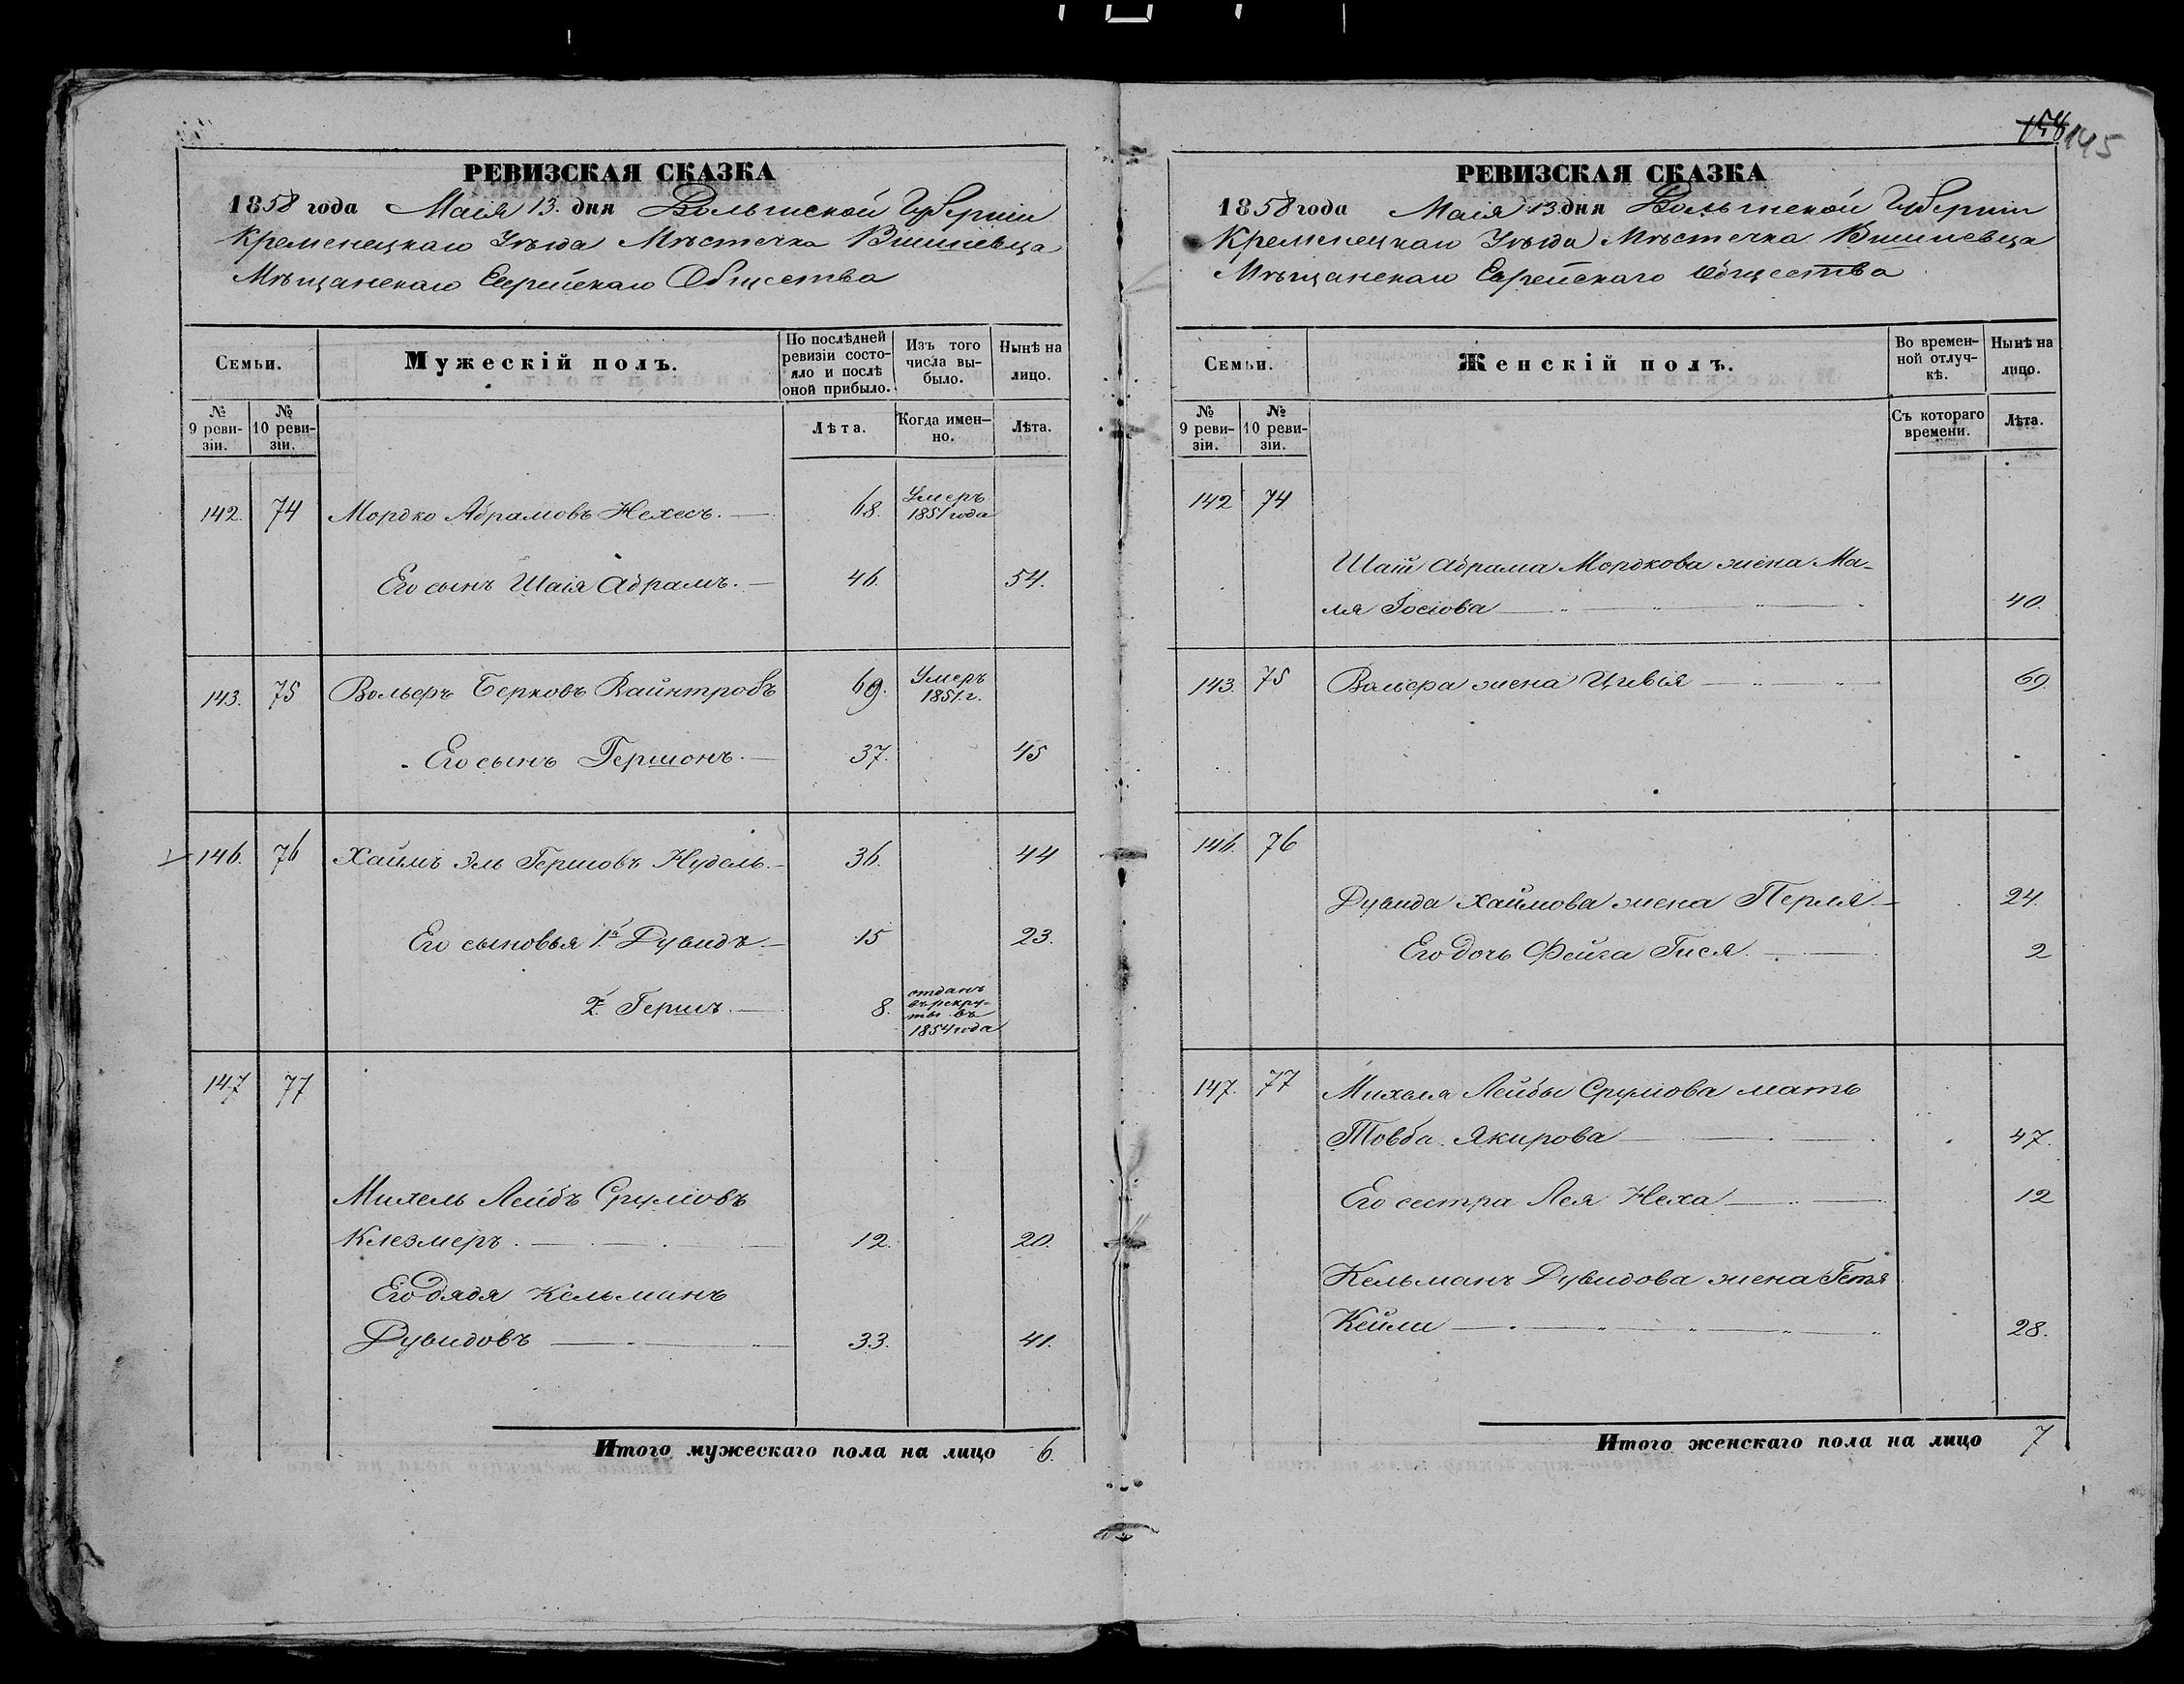 РЕВИЗСКАЯ СКАЗКА
1858 года Маія 13. дня Волынской Губерніи
Кременецкаго Уѣзда Мѣстечка Вишневца
Мѣщанскаго Еврейскаго Общества
Семьи.
Мужескій полъ.
По послѣдней ревизіи состояло и послѣ оной прибыло.
Изъ того числа выбыло.
Нынѣ на лицо.
№ 9 ревизіи.
№ 10 ревизіи.
Лѣта.
Когда именно.
Лѣта.
142. 74 Мордко Абрамовъ Нехесъ. 68. Умеръ 1851 года
Его сынъ Шаія Абрамъ. 46. 54.
143. 75 Вольфъ Берковъ Вайнтробъ 69. Умеръ 1851 г.
Его сынъ Гершонъ. 37. 45
146. 76 Хаимъ Эль Гершовъ Нудель. 36. 44
Его сыновья 1й Дувидъ. 15 23.
2й Гершъ. 8. отданъ въ рекруты въ 1854 года
147 77
Михель Лейбъ Срулiовъ
Клезмеръ. 12. 20.
Его дядя Кельманъ
Дувидовъ 33. 41.
Итого мужескаго пола на лицо 6.
158 145
РЕВИЗСКАЯ СКАЗКА
1858 года Маія 13 дня Волынской Губерніи
Кременецкаго Уѣзда Мѣстечка Вишневца
Мѣщанскаго Еврейскаго Общества
Семьи.
Женскій полъ.
Во временной отлучкѣ.
Нынѣ на лицо.
№ 9 ревизіи.
№ 10 ревизіи.
Съ котораго времени.
Лѣта.
142 74
Шаіи Абрама Мордкова жена Ма-
ля Іосiова 40.
143. 75 Вольфа жена Цивія 69.
146. 76
Дувида Хаимова жена Перля 24.
Его дочь Фейга Гися. 2
147. 77 Михеля Лейбы Срулiова мать
Товба Якирова 47.
Его сестра Лея Неха 12
Кельманъ Дувидова жена Гетя
Кейли 28.
Итого женскаго пола на лицо 7